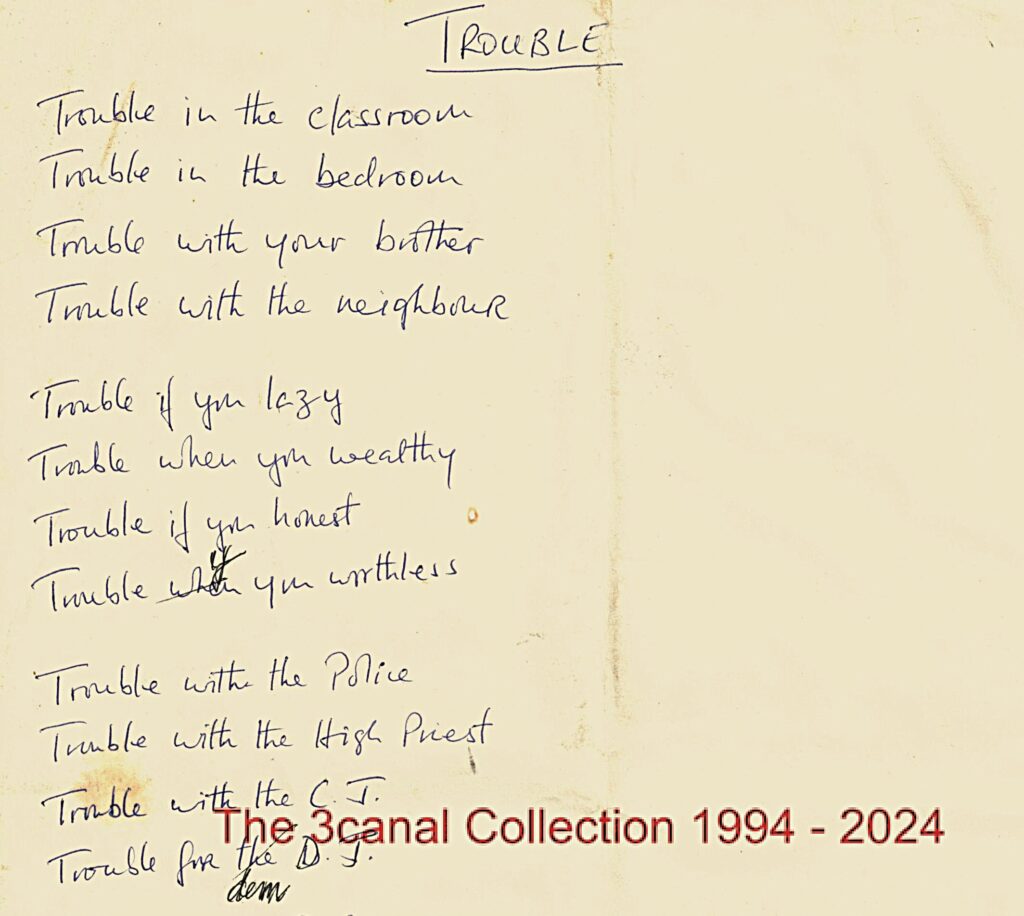 TROUBLE
Trouble in the classroom
Trouble in the bedroom
Trouble with your brother
Trouble with the neighbour
Trouble if you lazy
Trouble when you wealthy
Trouble if you honest
if
Trouble when you worthless
Trouble with the Police
Trouble with the High Priest
Trouble with the C.J.
The 3canal Collection 1994 - 2024
Trouble for the D.J.
dem